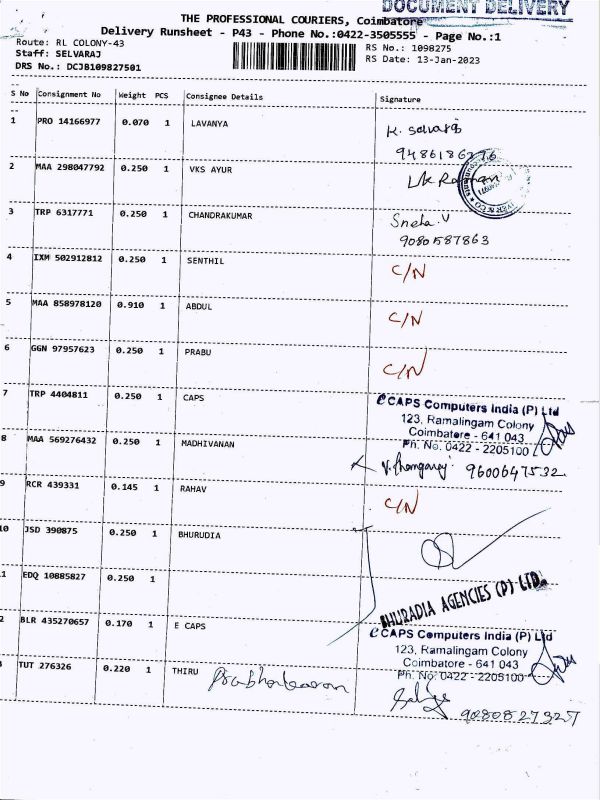 DOCUMENT DELIVERY
THE PROFESSIONAL COURIERS, Coimbatore
Delivery Runsheet - P43 - Phone No.:0422-3505555 - Page No.:1
Route: RL COLONY-43
RS No.: 1098275
Staff: SELVARAJ
RS Date: 13-Jan-2023
DRS No.: DCJB109827501
S No Consignment No Weight PCS Consignee Details Signature
1 PRO 14166977 0.070 1 LAVANYA K. Selvaraj
9486186276
2 MAA 298047792 0.250 1 VKS AYUR
3 TRP 6317771 0.250 1 CHANDRAKUMAR Sneha.V
9080587863
4 IXM 502912812 0.250 1 SENTHIL C/N
5 MAA 858978120 0.910 1 ABDUL C/N
6 GGN 97957623 0.250 1 PRABU C/N
7 TRP 4404811 0.250 1 CAPS CAPS Computers India (P) Ltd
123, Ramalingam Colony
Coimbatore - 641 043
Ph. No. 0422 - 2205100
8 MAA 569276432 0.250 1 MADHIVANAN 9600647532
9 RCR 439331 0.145 1 RAHAV C/N
10 JSD 390875 0.250 1 BHURUDIA
1 EDQ 10885827 0.250 1
BHURADIA AGENCIES (P) LTD.
2 BLR 435270657 0.170 1 E CAPS CAPS Computers India (P) Ltd
123, Ramalingam Colony
Coimbatore - 641 043
Ph. No. 0422 - 2205100
TUT 276326 0.220 1 THIRU Prabhakaran
9080827327